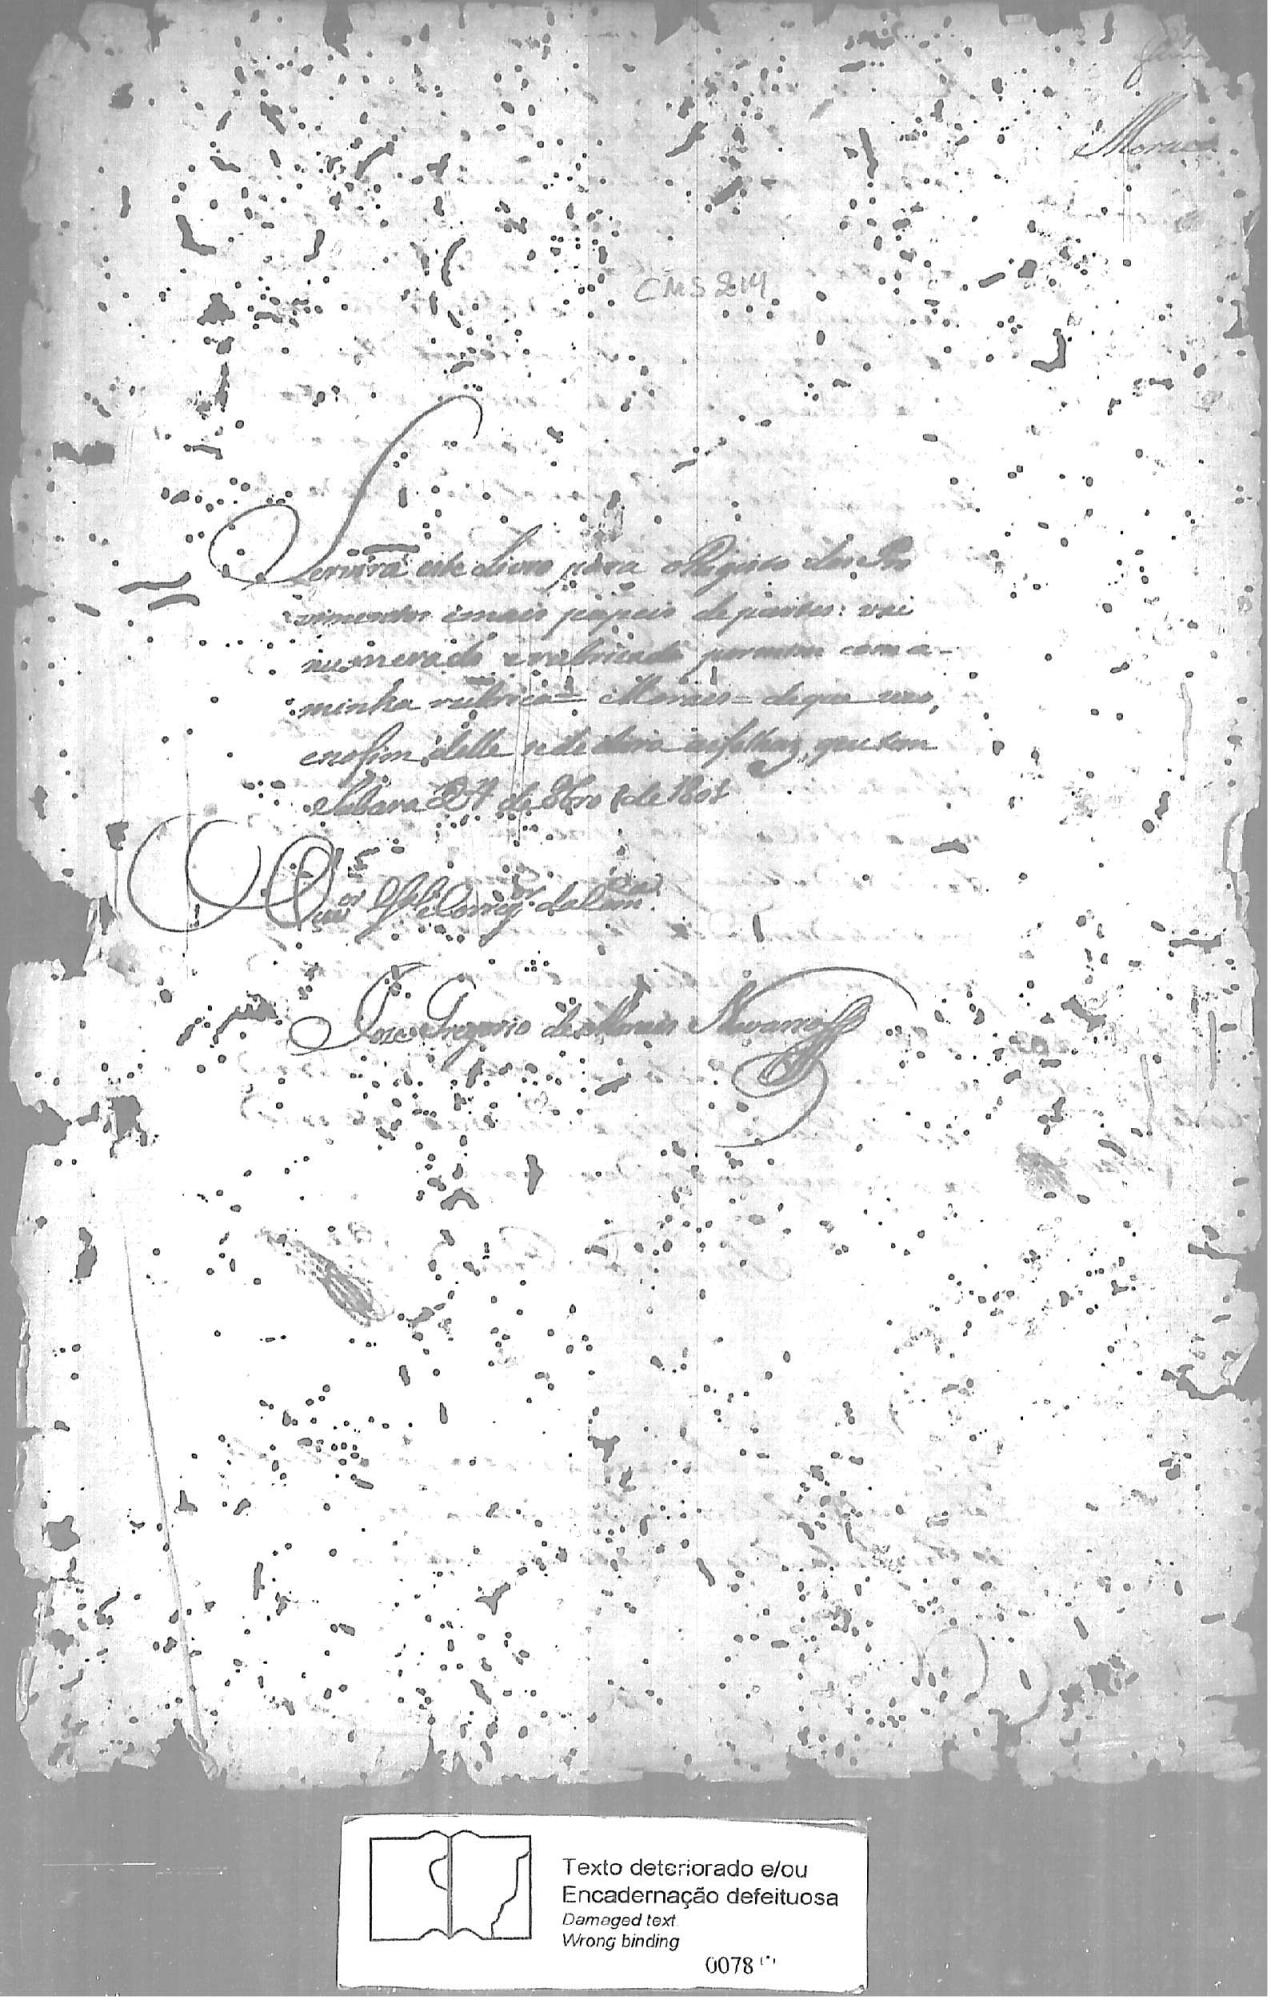 Moraes
CMS 214
Servirá este Livro para o Registo dos Pro
vimentos e mais papeis de partes: vai
numerado e rubricado por mim com a
minha rubrica = Moraes = de que uzo,
e no fim delle se declara as folhas, que tem
Sabara 27 de 8bro de 1801
José Gregorio de Moraes Navarro
Texto deteriorado e/ou
Encadernação defeituosa
Damaged text
Wrong binding
0078